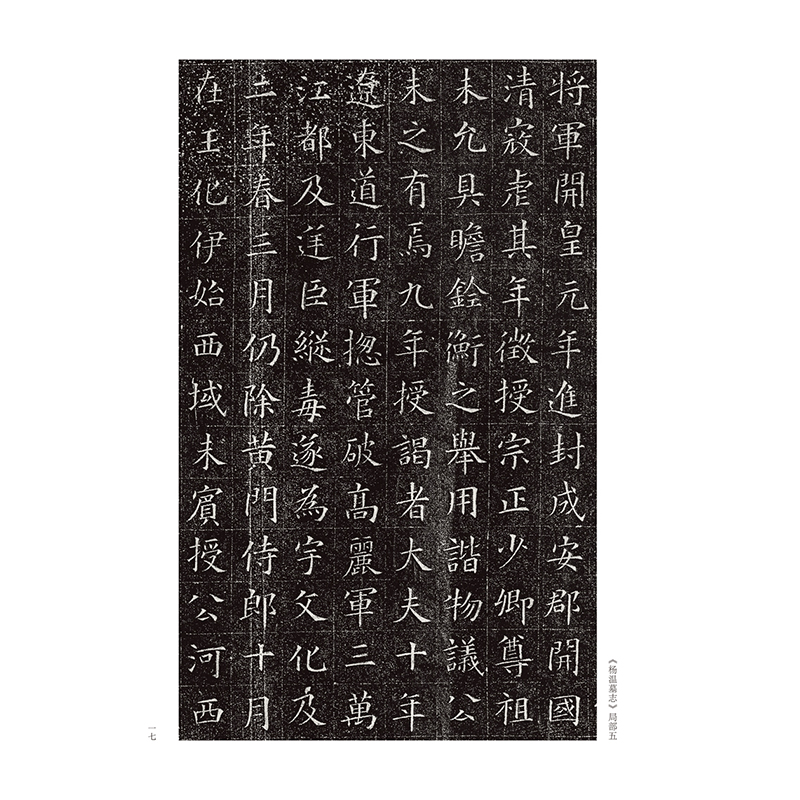 将軍開皇元年進封成安郡開國
清寇虐其年徵授宗正少卿尊祖
未允具瞻銓衡之舉用諧物議公
未之有焉九年授謁者大夫十年
遼東道行軍揔管破髙麗軍三萬
江都及逆臣縱毒遂為宇文化及
二年春三月仍除黄門侍郎十月
在王化伊始西域未賓授公河西
《杨温墓志》局部五
一七